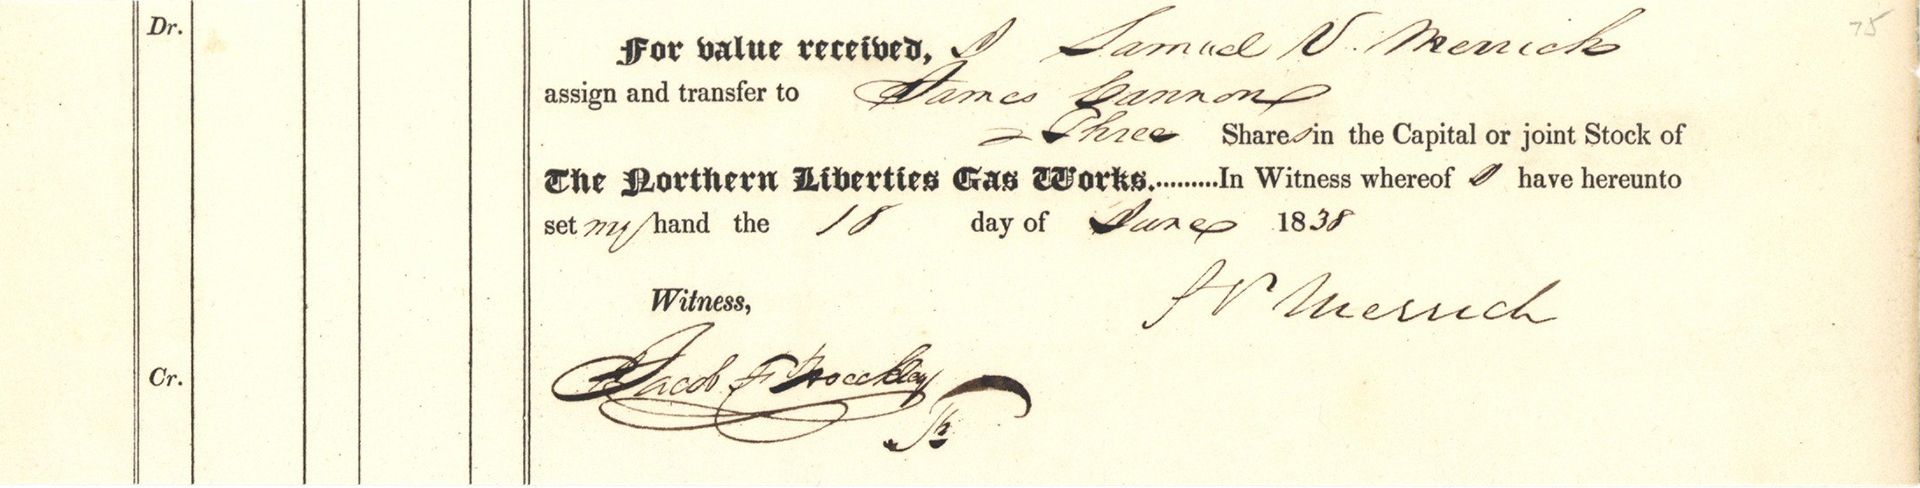 Dr.
75
For value received, I Samuel V. Merrick
assign and transfer to James Cannon
Three Shares in the Capital or joint Stock of
The Northern Liberties Gas Works..........In Witness whereof I have hereunto
set my hand the 18 day of June 1838
Witness,
S V Merrick
Cr.
Jacob F Hoeckley